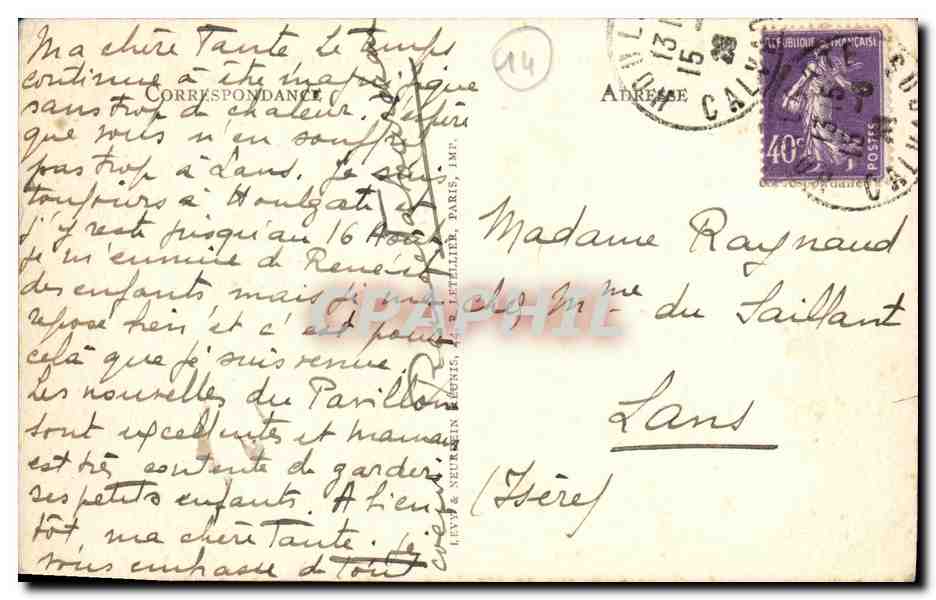 Ma chère Tante Le temps
continue à être magnifique
CORRESPONDANCE
sans trop de chaleur. J'espère
que vous n'en souffrez
pas trop à Lans. Je suis
toujours à Houlgate et
j'y reste jusqu'au 16 Août
je m'ennuie de René et
des enfants mais je me
repose bien et c'est pour
celà que je suis venue.
Les nouvelles du Pavillon
sont excellentes et maman
est très contente de garder
ses petits enfants. A bien
tôt ma chère Tante. Je
vous embrasse de tout
coeur
LEVY & NEURDEIN RÉUNIS, 44, R. LETELLIER, PARIS, IMP.
14
ADRESSE
CALVADOS
13
15
REPUBLIQUE FRANÇAISE
40c
POSTES
CALVADOS
Madame Raynaud
chez Mme du Saillant
Lans
(Isère)
CPAPHIL